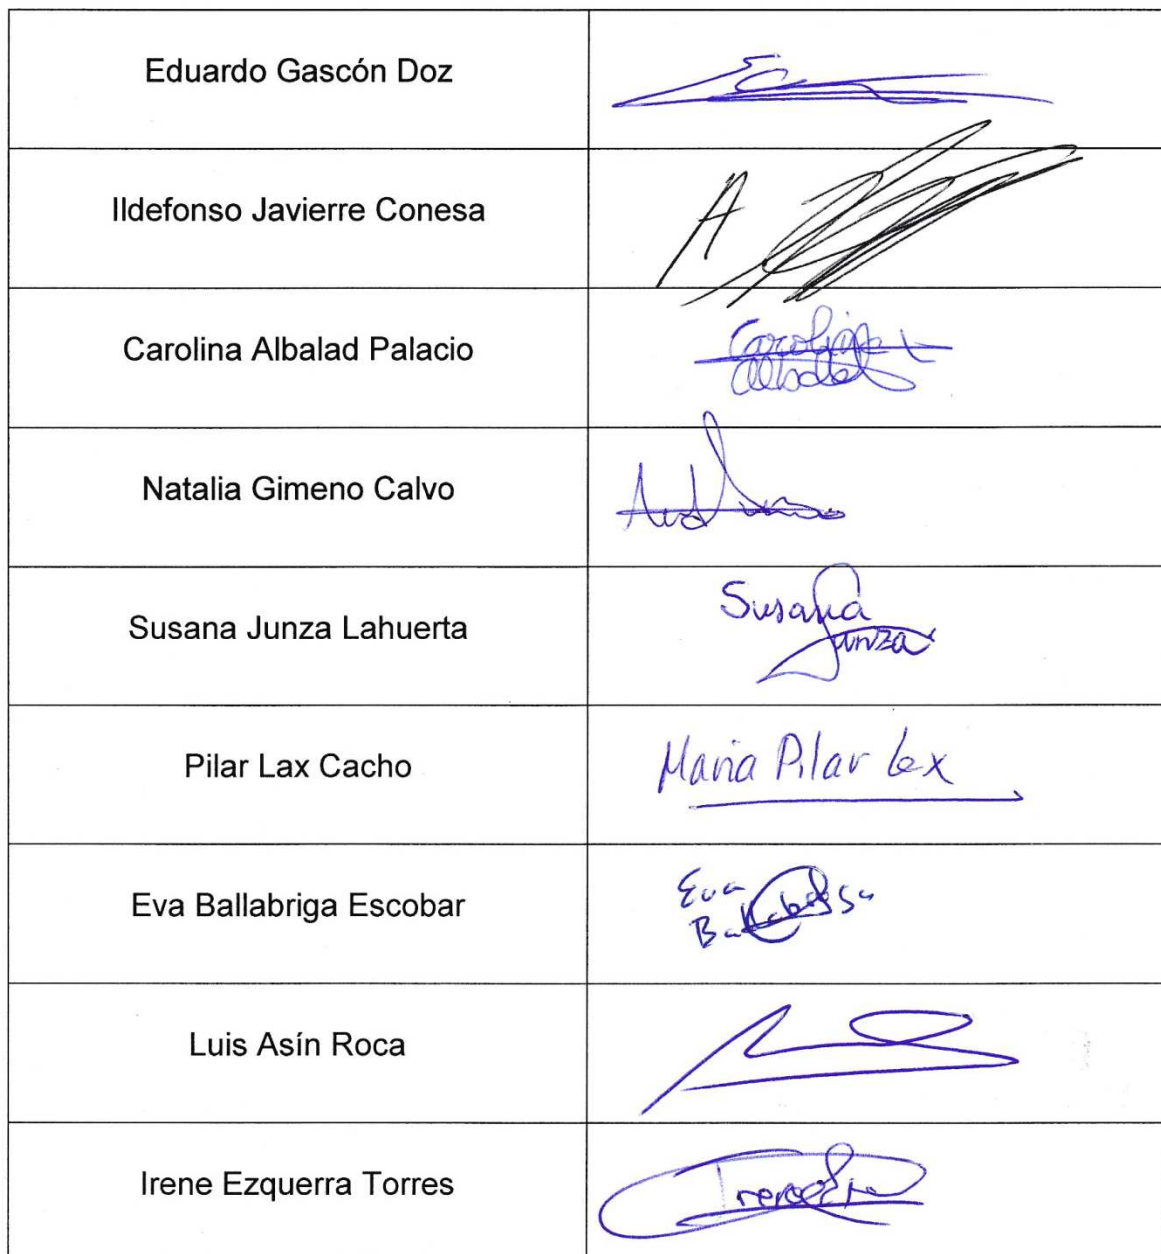 Eduardo Gascón Doz
Ildefonso Javierre Conesa
A
Carolina Albalad Palacio
Carolina
Natalia Gimeno Calvo
Susana Junza Lahuerta
Susana
Junza
Pilar Lax Cacho
Maria Pilar Lax
Eva Ballabriga Escobar
Eva
Luis Asín Roca
Irene Ezquerra Torres
Irene